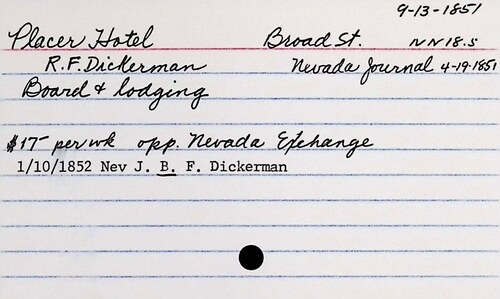 9-13-1851
Placer Hotel Broad St. NN18.5
R.F. Dickerman Nevada Journal 4-19-1851
Board & lodging
$17- per wk opp. Nevada Exchange
1/10/1852 Nev J. B. F. Dickerman